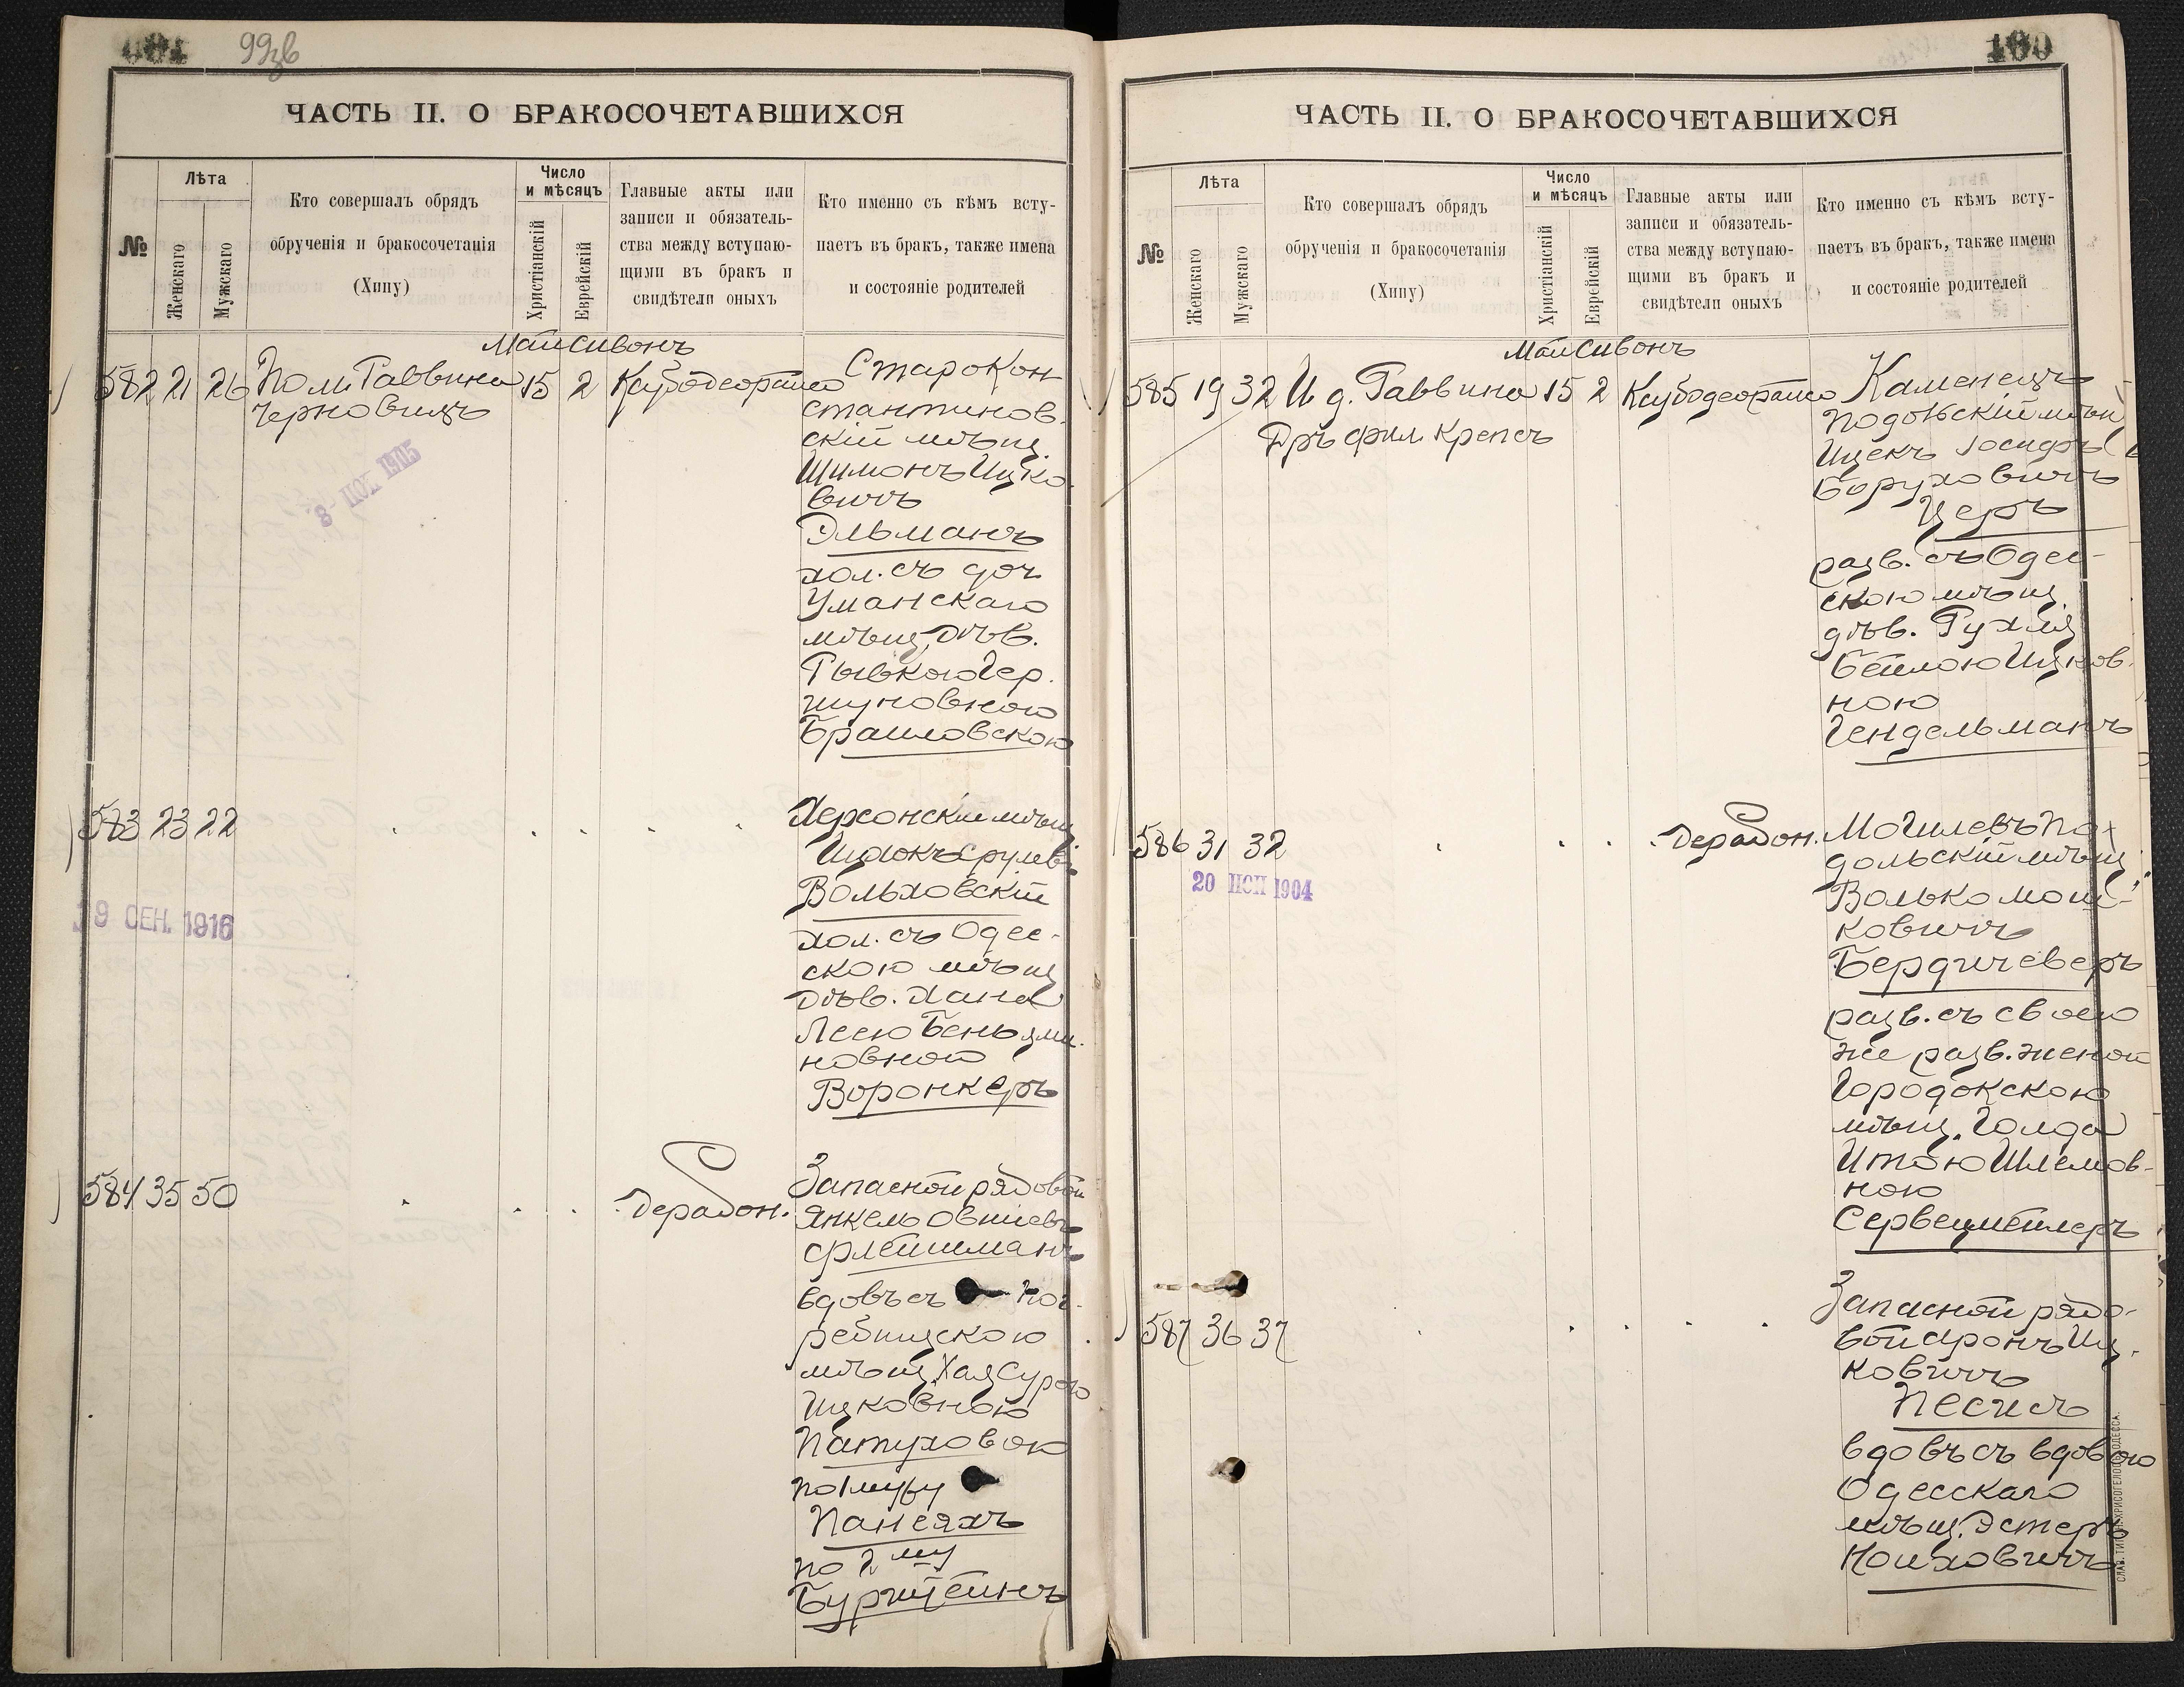 99зв
ЧАСТЬ II. О БРАКОСОЧЕТАВШИХСЯ
№
Лѣта
Женскаго
Мужскаго
Кто совершалъ обрядъ
обрученія и бракосочетанія
(Хипу)
Число
и мѣсяцъ
Христіанскій
Еврейскій
Главные акты или
записи и обязатель-
ства между вступаю-
щими въ бракъ и
свидѣтели оныхъ
Кто именно съ кѣмъ всту-
паетъ въ бракъ, также имена
и состояніе родителей
Май Сивонъ
582 21 26 Пом. Раввина 15 2
Черновицъ
8 НОЯ 1905
Старокон
стантинов-
скій мѣщ.
Шимонъ Ицко-
вичъ
Эльманъ
хол. съ доч.
Уманскаго
мѣщ. дѣв.
Рывкою Гер-
шуновною
Браиловскою
583 23 22
19 СЕН. 1916
Херсонскій мѣщ.
Ицхокъ Срулев.
Вольховскій
хол. съ Одес-
скою мѣщ.
дѣв. Хана
Леею Беньями-
новной
Воронкеръ
584 35 50 Дерабон.
Запасной рядовой
Янкель Овшіевъ
Флейшманъ
вдовъ съ Пог-
ребищскою
мѣщ. Хая Сурою
Ицковною
Патуховою
по 1 мужу
Пансяхъ
по 2му
Бурштейнъ
100
ЧАСТЬ II. О БРАКОСОЧЕТАВШИХСЯ
№
Лѣта
Женскаго
Мужскаго
Кто совершалъ обрядъ
обрученія и бракосочетанія
(Хипу)
Число
и мѣсяцъ
Христіанскій
Еврейскій
Главные акты или
записи и обязатель-
ства между вступаю-
щими въ бракъ и
свидѣтели оныхъ
Кто именно съ кѣмъ всту-
паетъ въ бракъ, также имена
и состояніе родителей
Май Сивонъ
585 19 32 И д. Раввина 15 2
Дръ фил. Крепсъ
Каменецъ
Подольскій мѣщ.
Ицекъ Іосифъ
Боруховичъ
Церъ
разв. съ Одес-
скою мѣщ.
дѣв. Рухля
Бейлою Ицков-
ною
Гендельманъ
586 31 32 Дерабон.
20 ІЮН 1904
Могилевъ По-
дольскій мѣщ.
Волько Мош-
ковичъ
Бердичеверъ
разв. съ своею
же разв. женой
Городокскою
мѣщ. Голда
Итою Шлемов-
ною
Сервецмейлеръ
587 36 37
Запасной рядо-
вой Аронъ Иц-
ковичъ
Песисъ
вдовъ съ вдовою
Одесскаго
мѣщ. Эстеръ
Ноиховичъ
СЛАВ. ТИП. Н. ХРИСОГЕЛОСЪ ОДЕССА.